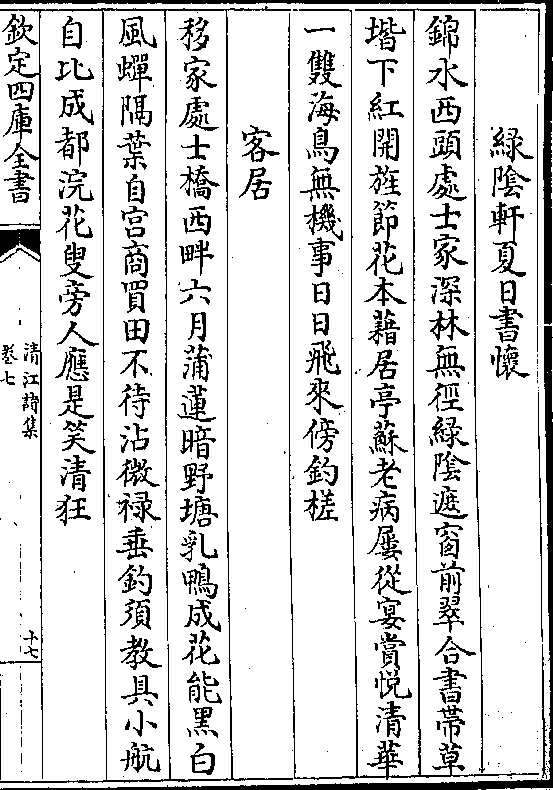 綠陰軒夏日書懷
錦水西頭處士家深林無徑緑陰遮窗前翠合書帶草
堦下紅開旌節花本藉居亭蘇老病屢從宴賞悦清華
一雙海鳥無機事日日飛來傍釣槎
客居
移家處士橋西畔六月蒲蓮暗野塘乳鴨成花能黑白
風蟬隔葉自宫商買田不待沾微禄垂釣須教具小航
自比成都浣花叟旁人應是笑清狂
欽定四庫全書
清江詩集
卷七
十七